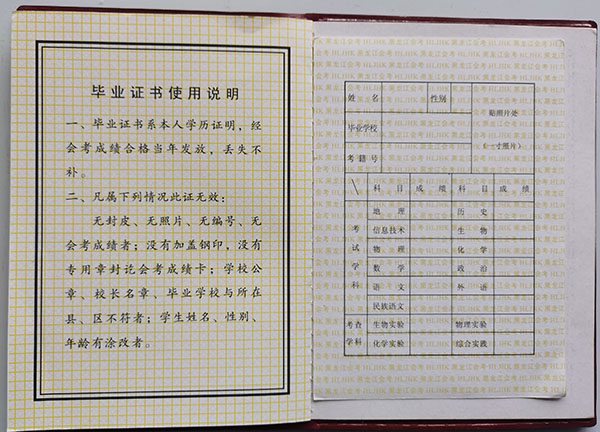 毕业证书使用说明
一、毕业证书系本人学历证明，经
会考成绩合格当年发放，丢失不
补。
二、凡属下列情况此证无效：
无封皮、无照片、无编号、无
会考成绩者；没有加盖钢印，没有
专用章封讫会考成绩卡；学校公
章、校长名章、毕业学校与所在
县、区不符者；学生姓名、性别、
年龄有涂改者。
黑龙江会考 HLJHK 黑龙江会考 HLJHK 黑龙江会考
姓 名 性别
贴照片处
毕业学校
(一寸照片)
考籍号
科 目 成 绩 科 目 成 绩
考试学科
地 理 历 史
信息技术 生 物
物 理 化 学
数 学 政 治
语 文 外 语
民族语文
考查学科
生物实验 物理实验
化学实验 综合实践